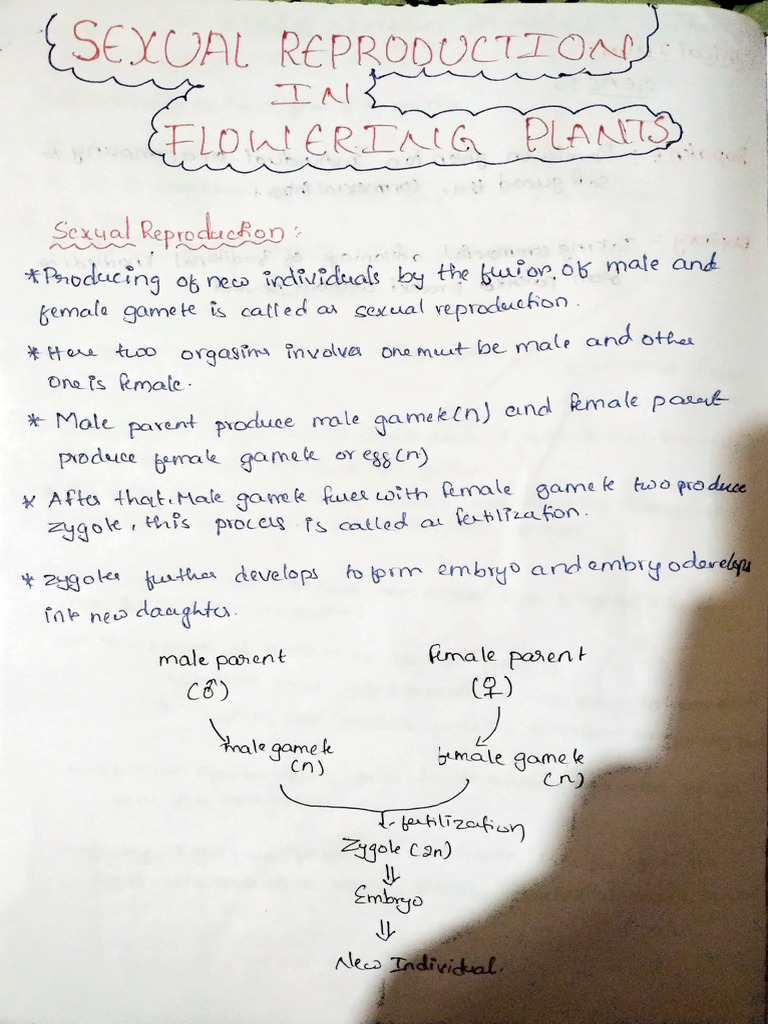 SEXUAL REPRODUCTION
IN
FLOWERING PLANTS
Sexual Reproduction:
* Producing of new individuals by the fusion of male and
female gamete is called as sexual reproduction.
* Here two orgasims involves one must be male and other
one is female.
* Male parent produce male gamete(n) and female parent
produce female gamete or egg(n)
* After that, Male gamete fuses with female gamete two produce
zygote, this process is called as fertilization.
* zygotes further develops to form embryo and embryo develops
into new daughter.
male parent female parent
(♂) (♀)
male gamete female gamete
(n) (n)
fertilization
Zygote (2n)
⇓
Embryo
⇓
New Individual.